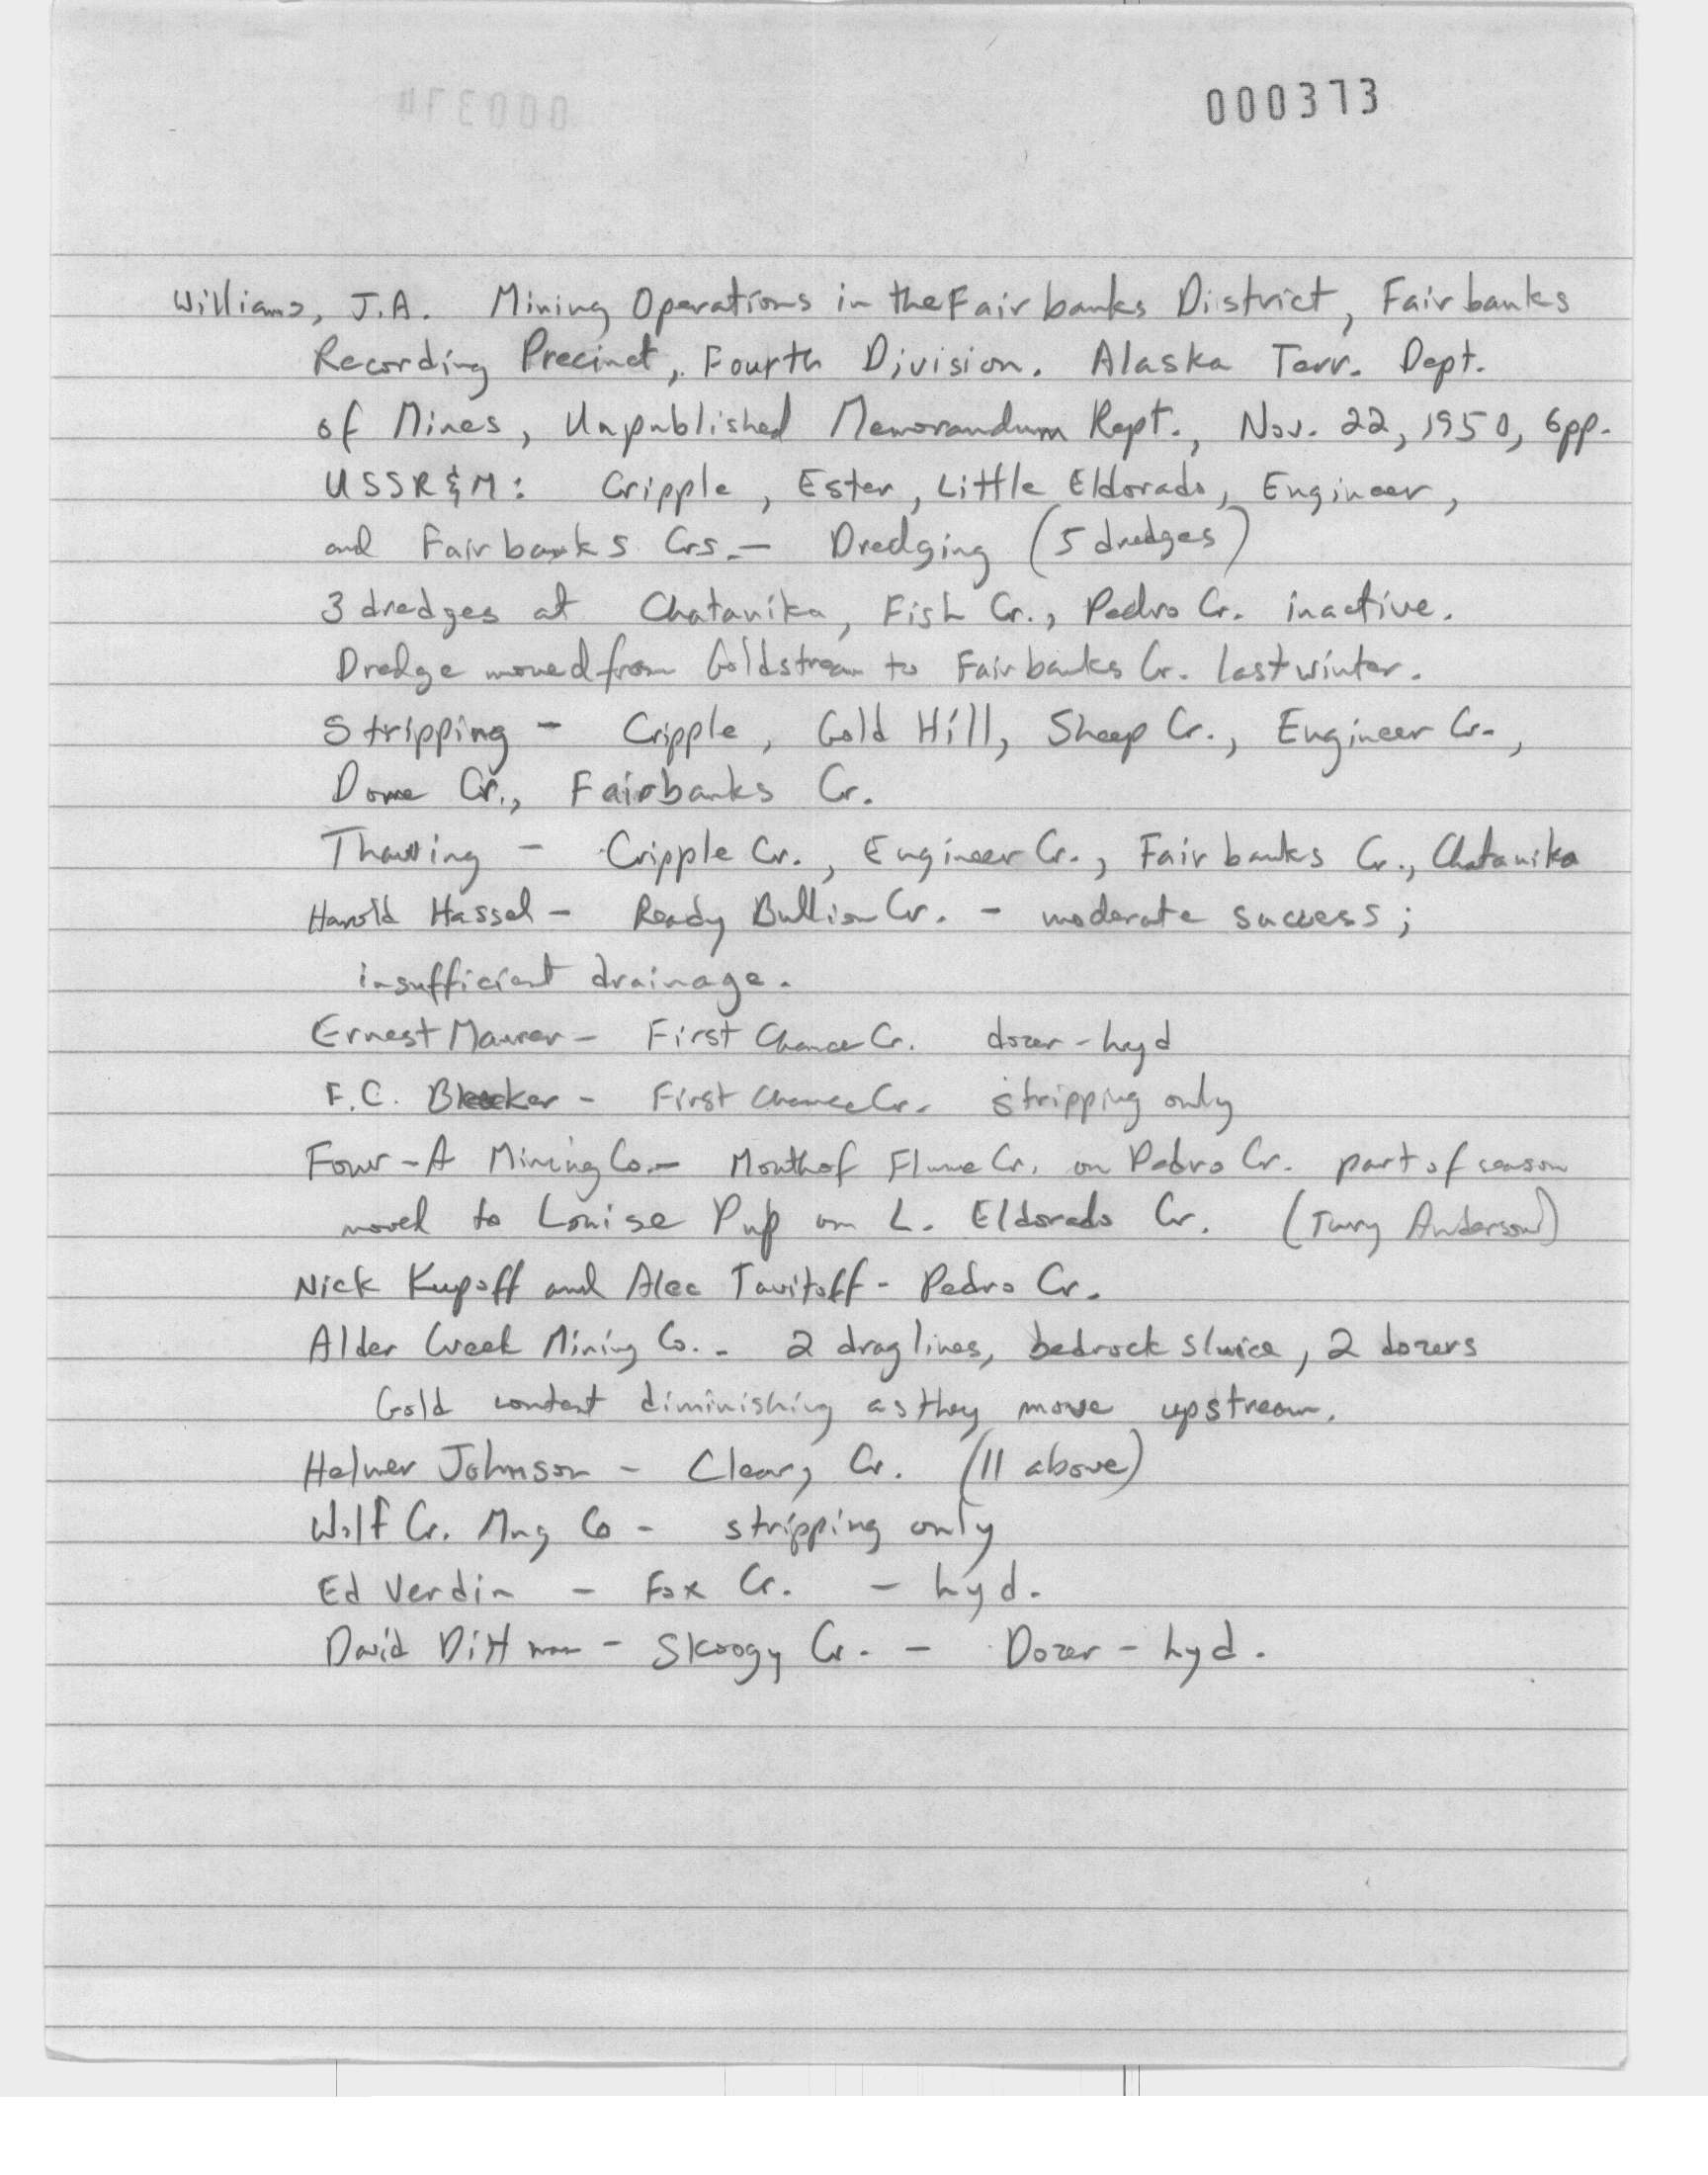 000373
Williams, J.A. Mining Operations in the Fairbanks District, Fairbanks
Recording Precinct, Fourth Division. Alaska Terr. Dept.
of Mines, Unpublished Memorandum Rept., Nov. 22, 1950, 6pp.
USSR&M: Cripple, Ester, Little Eldorado, Engineer,
and Fairbanks Crs. - Dredging (5 dredges)
3 dredges at Chatanika, Fish Cr., Pedro Cr. inactive.
Dredge moved from Goldstream to Fairbanks Cr. last winter.
Stripping - Cripple, Gold Hill, Sheep Cr., Engineer Cr.,
Dome Cr., Fairbanks Cr.
Thawing - Cripple Cr., Engineer Cr., Fairbanks Cr., Chatanika
Harold Hassel - Ready Bullion Cr. - moderate success;
insufficient drainage.
Ernest Maurer - First Chance Cr. dozer-hyd
F.C. - First Chance Cr. stripping only
Four-A Mining Co. - Mouth of Flume Cr. on Pedro Cr. part of season
moved to Louise Pup on L. Eldorado Cr. (Anderson)
Nick Kupoff and Alec Tavitoff - Pedro Cr.
Alder Creek Mining Co. - 2 draglines, bedrock sluice, 2 dozers
Gold content diminishing as they move upstream.
Helmer Johnson - Cleary Cr. (11 above)
Wolf Cr. Mng Co - stripping only
Ed Verdin - Fox Cr. - hyd.
David Dittman - Skoogy Cr. - Dozer - hyd.